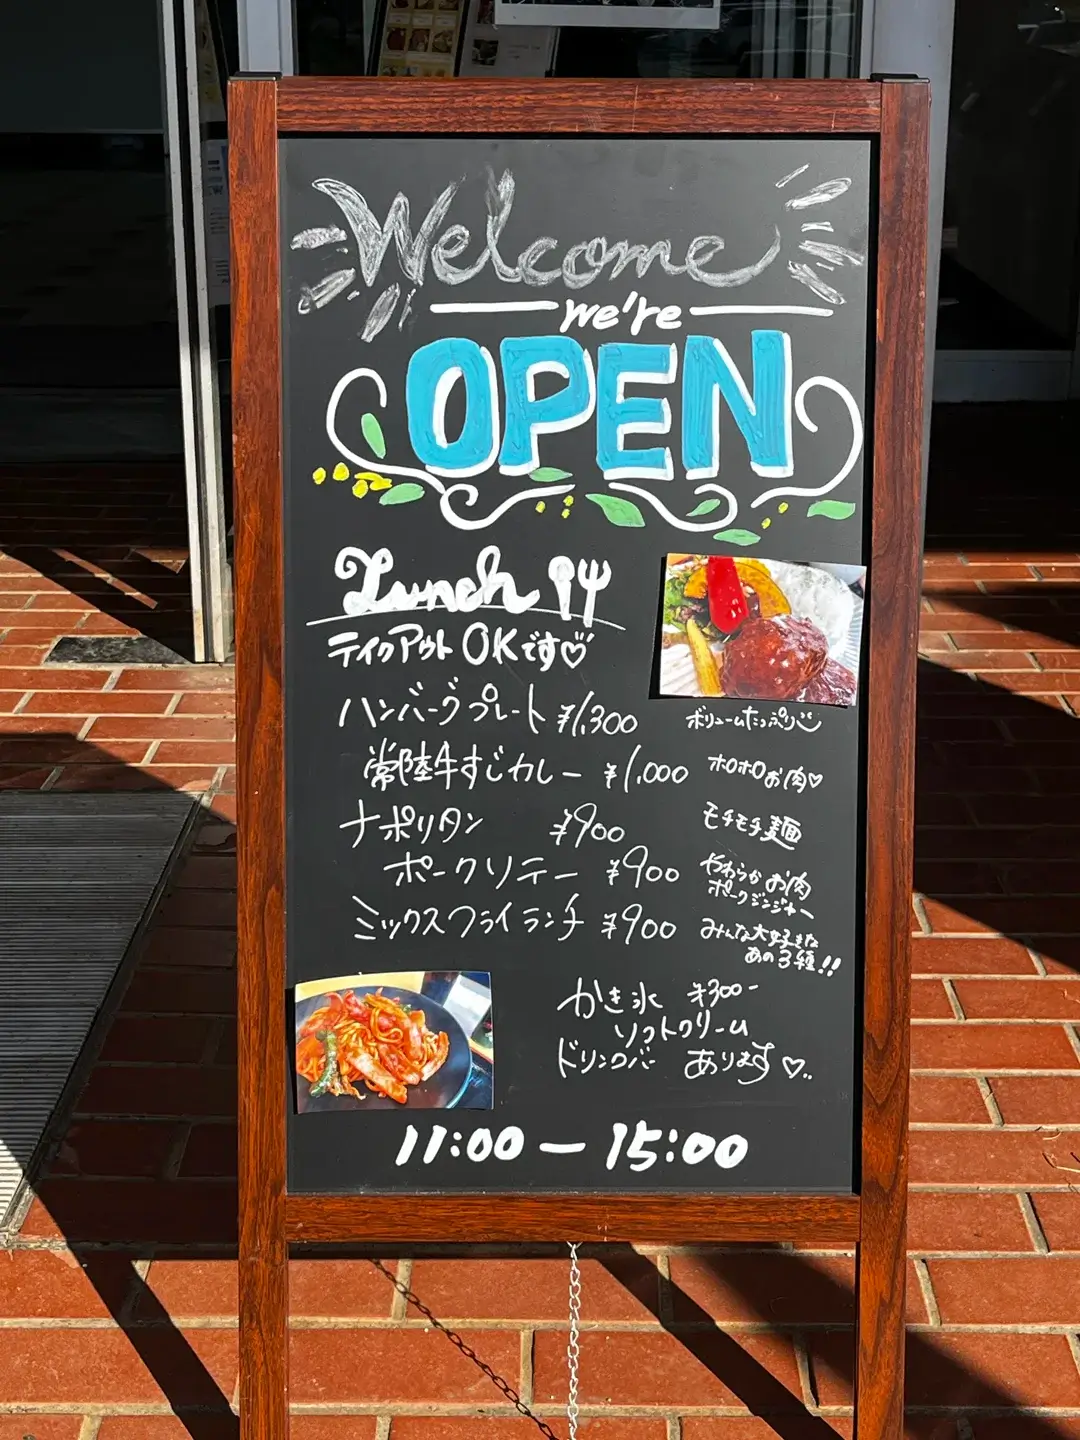 Welcome
we're
OPEN
Lunch
テイクアウト OKです♡
ハンバーグプレート ¥1,300 ボリュームたっぷり
常陸牛すじカレー ¥1,000 ホロホロお肉♡
ナポリタン ¥900 モチモチ麺
ポークソテー ¥900 やわらかお肉
ポークジンジャー
ミックスフライランチ ¥900 みんな大好きな
あの3種!!
かき氷 ¥300-
ソフトクリーム
ドリンクバー あります♡..
11:00 - 15:00